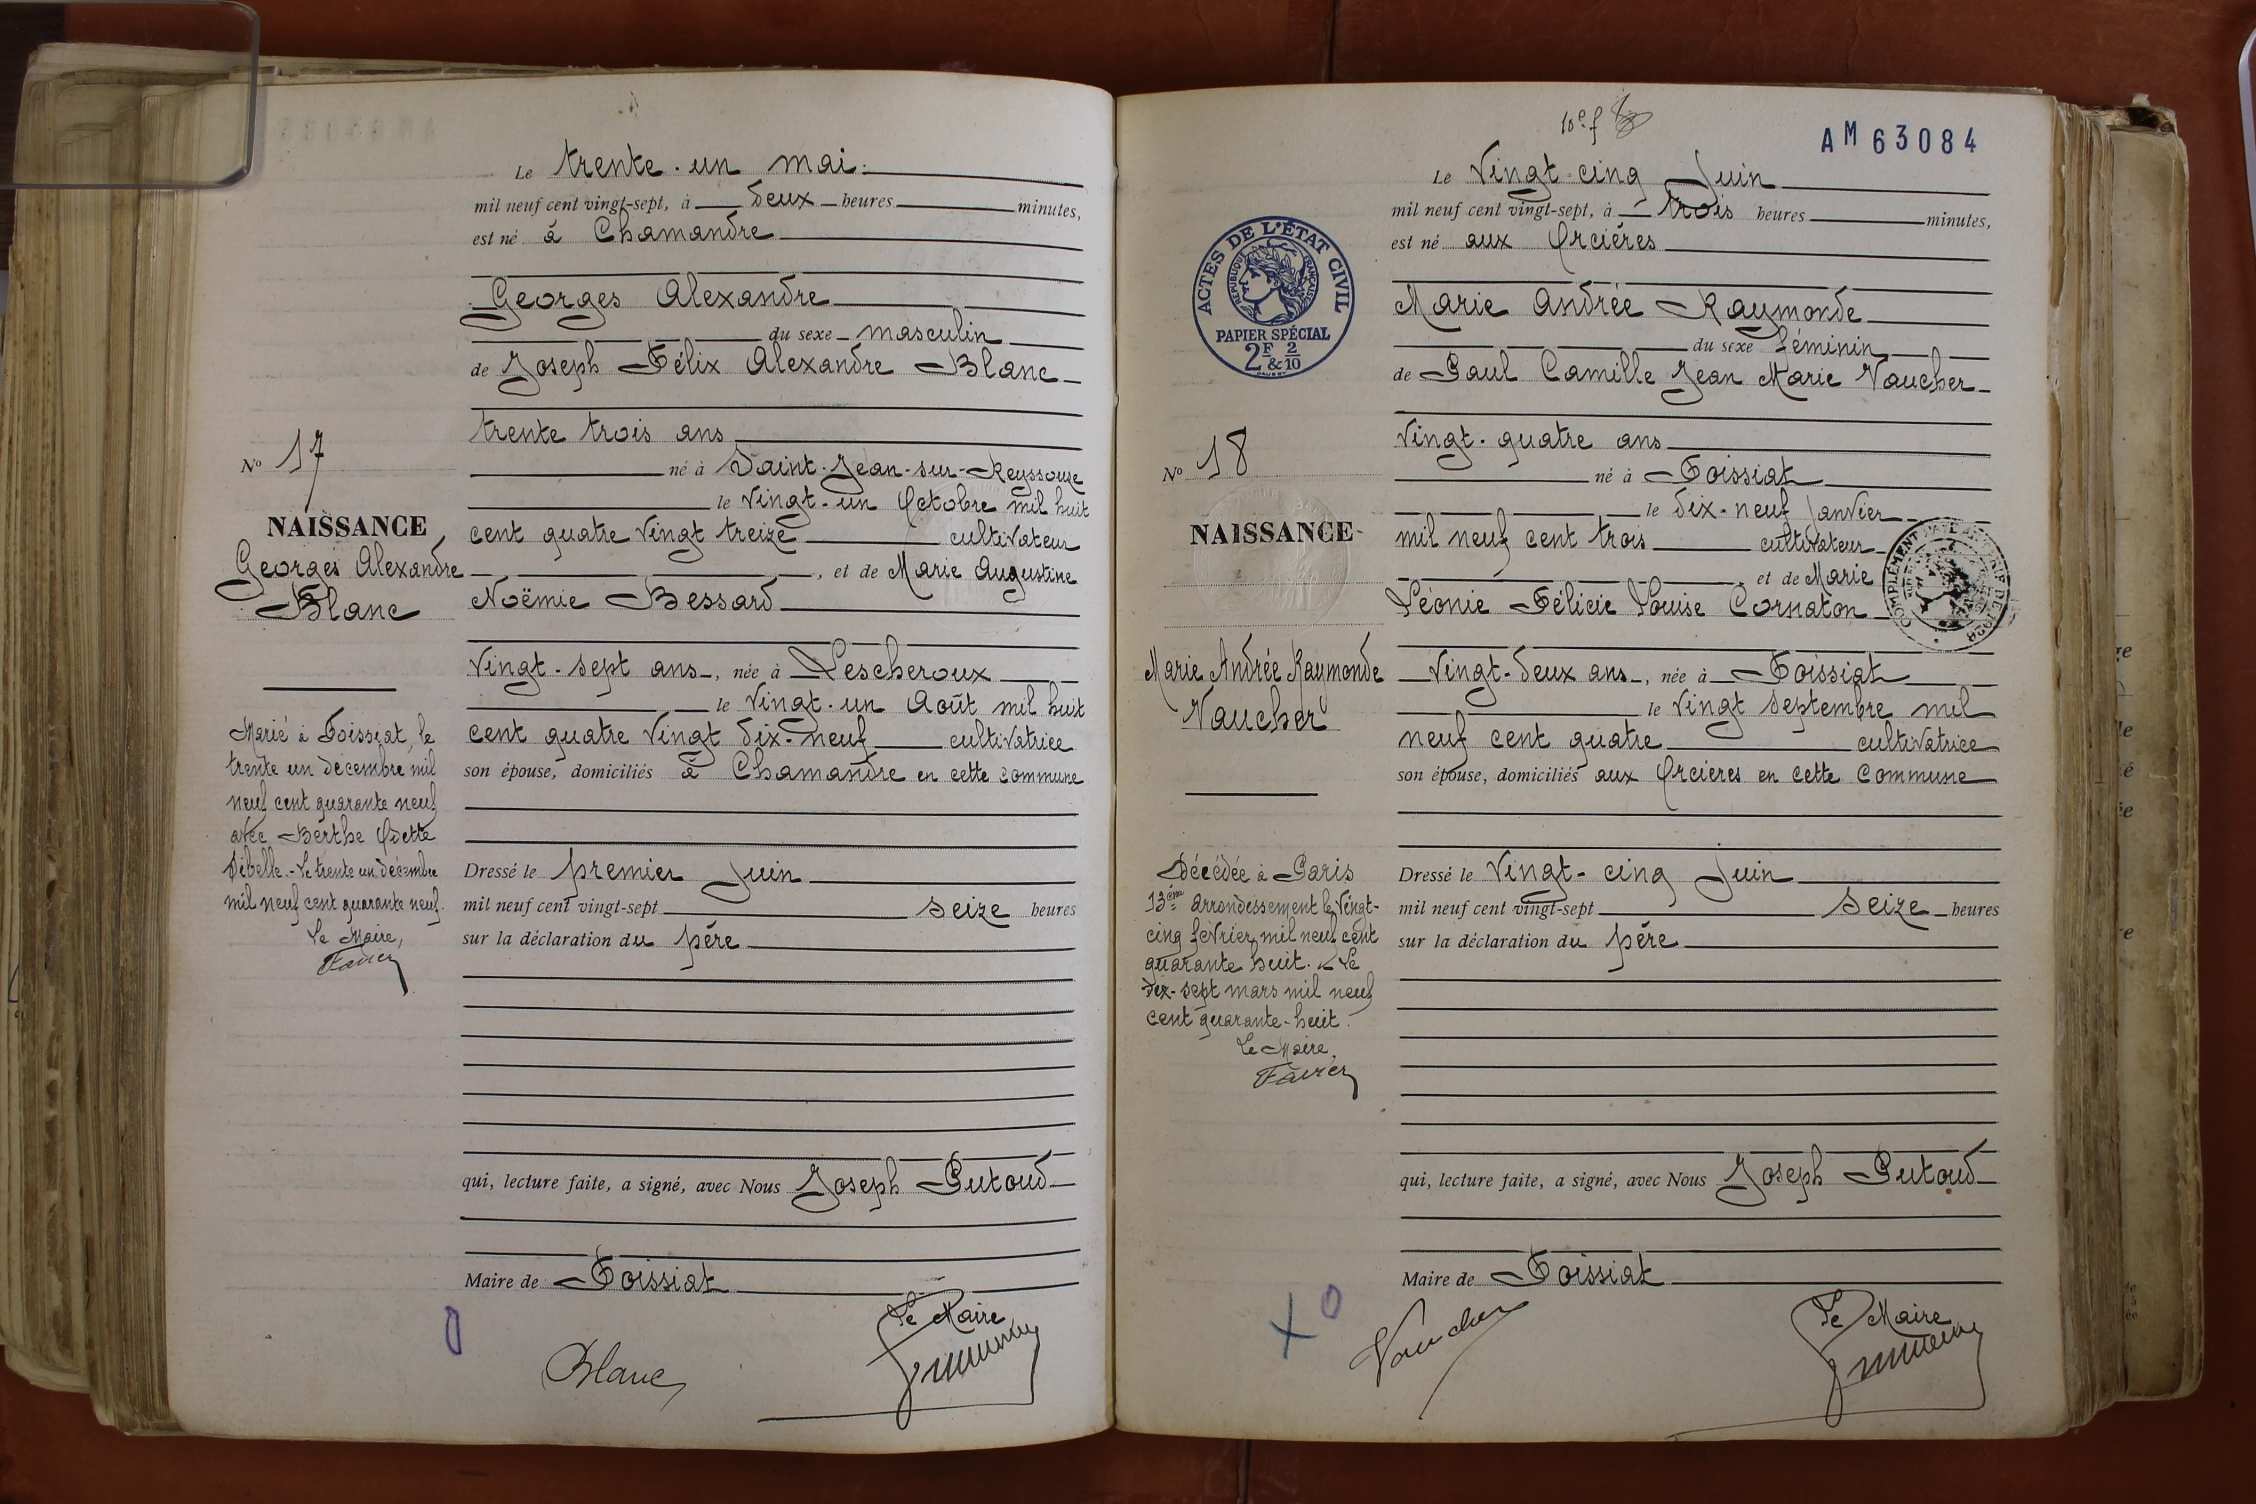 Le trente-un mai
mil neuf cent vingt-sept, à deux heures minutes,
est né à Chamandre
Georges Alexandre
du sexe masculin
de Joseph Félix Alexandre Blanc
trente trois ans
né à Saint-Jean-sur-Reyssouze
le vingt-un Octobre mil huit
cent quatre vingt treize cultivateur
, et de Marie Augustine
Noëmie Bessard
vingt-sept ans, née à Lescheroux
le vingt-un Août mil huit
cent quatre vingt dix-neuf cultivatrice
son épouse, domiciliés à Chamandre en cette commune
Dressé le premier Juin
mil neuf cent vingt-sept seize heures
sur la déclaration du père
qui, lecture faite, a signé, avec Nous Joseph Putoud
Maire de Foissiat
Le Maire
Blanc
No 17
NAISSANCE
Georges Alexandre
Blanc
Marié à Foissiat, le
trente un décembre mil
neuf cent quarante neuf
avec Berthe Odette
Débelle.- Le trente un décembre
mil neuf cent quarante neuf.
Le Maire,
Favier
10e f
AM 63084
Le Vingt-cinq Juin
mil neuf cent vingt-sept, à trois heures minutes,
est né aux Orcières
Marie Andrée Raymonde
du sexe féminin
de Paul Camille Jean Marie Vaucher
vingt-quatre ans
né à Foissiat
le dix-neuf Janvier
mil neuf cent trois cultivateur
et de Marie
Léonie Félicie Louise Cornaton
vingt-deux ans, née à Foissiat
le vingt Septembre mil
neuf cent quatre cultivatrice
son épouse, domiciliés aux Orcières en cette commune
Dressé le vingt-cinq Juin
mil neuf cent vingt-sept seize heures
sur la déclaration du père
qui, lecture faite, a signé, avec Nous Joseph Putoud
Maire de Foissiat
Le Maire
Vaucher
ACTES DE L'ÉTAT CIVIL
RÉPUBLIQUE FRANÇAISE
PAPIER SPÉCIAL
2F & 2/10
No 18
NAISSANCE
Marie Andrée Raymonde
Vaucher
Décédée à Paris
13ème arrondessement le vingt-
cinq février mil neuf cent
quarante huit. Le
dix-sept mars mil neuf
cent quarante-huit.
Le Maire,
Favier